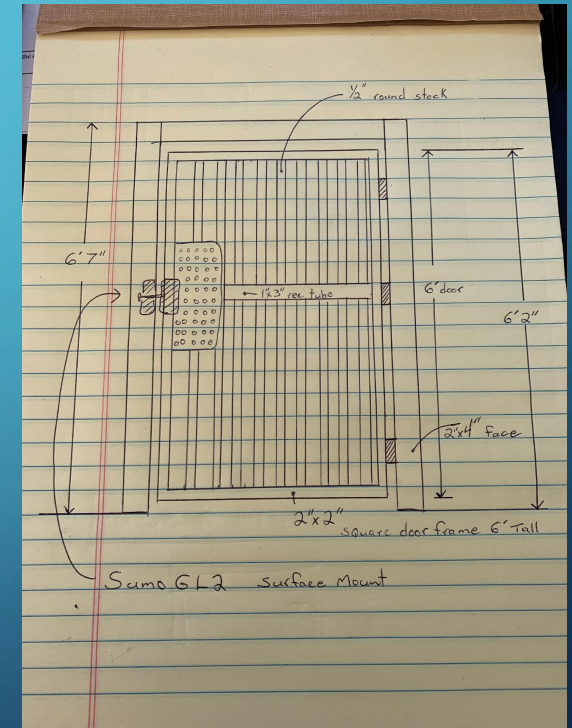 1/2" round stock
6' 7"
1"x3" rec tube
6' door
6' 2"
2"x4" face
2"x2"
square door frame 6' Tall
Sumo GL2 Surface Mount